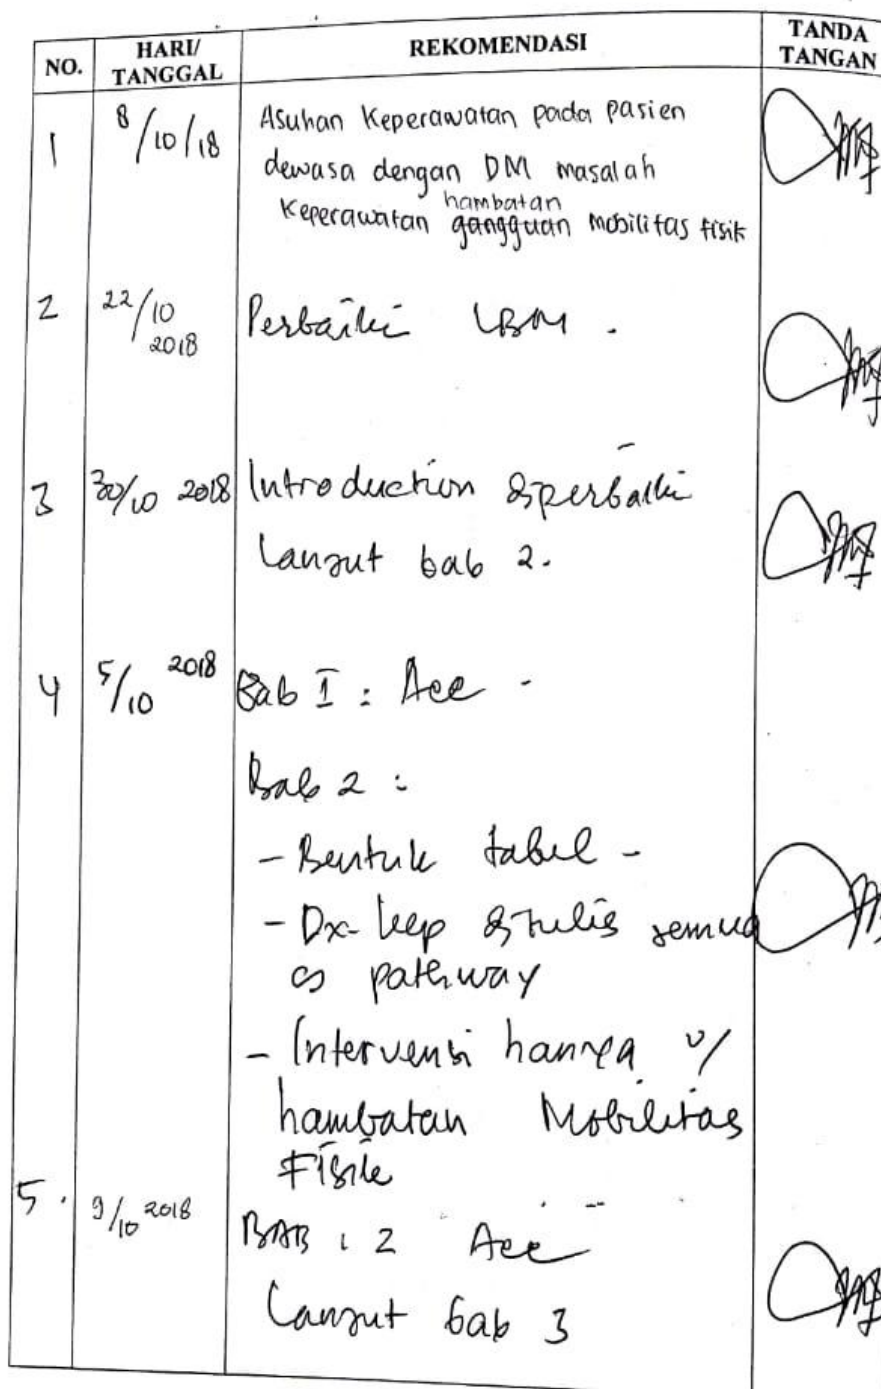 NO. HARI/ TANGGAL REKOMENDASI TANDA TANGAN
1 8/10/18 Asuhan Keperawatan pada pasien
dewasa dengan DM masalah
hambatan
Keperawatan gangguan mobilitas fisik
2 22/10 2018 Perbaiki LBM .
3 30/10 2018 Introduction diperbaiki
Lanjut bab 2.
4 5/10 2018 Bab I : Acc -
Bab 2 :
- Bentuk tabel -
- Dx- kep ditulis semua
pathway
- Intervensi hanya u/
hambatan Mobilitas
Fisik
5. 9/10 2018 BAB 1 2 Acc
Lanjut bab 3